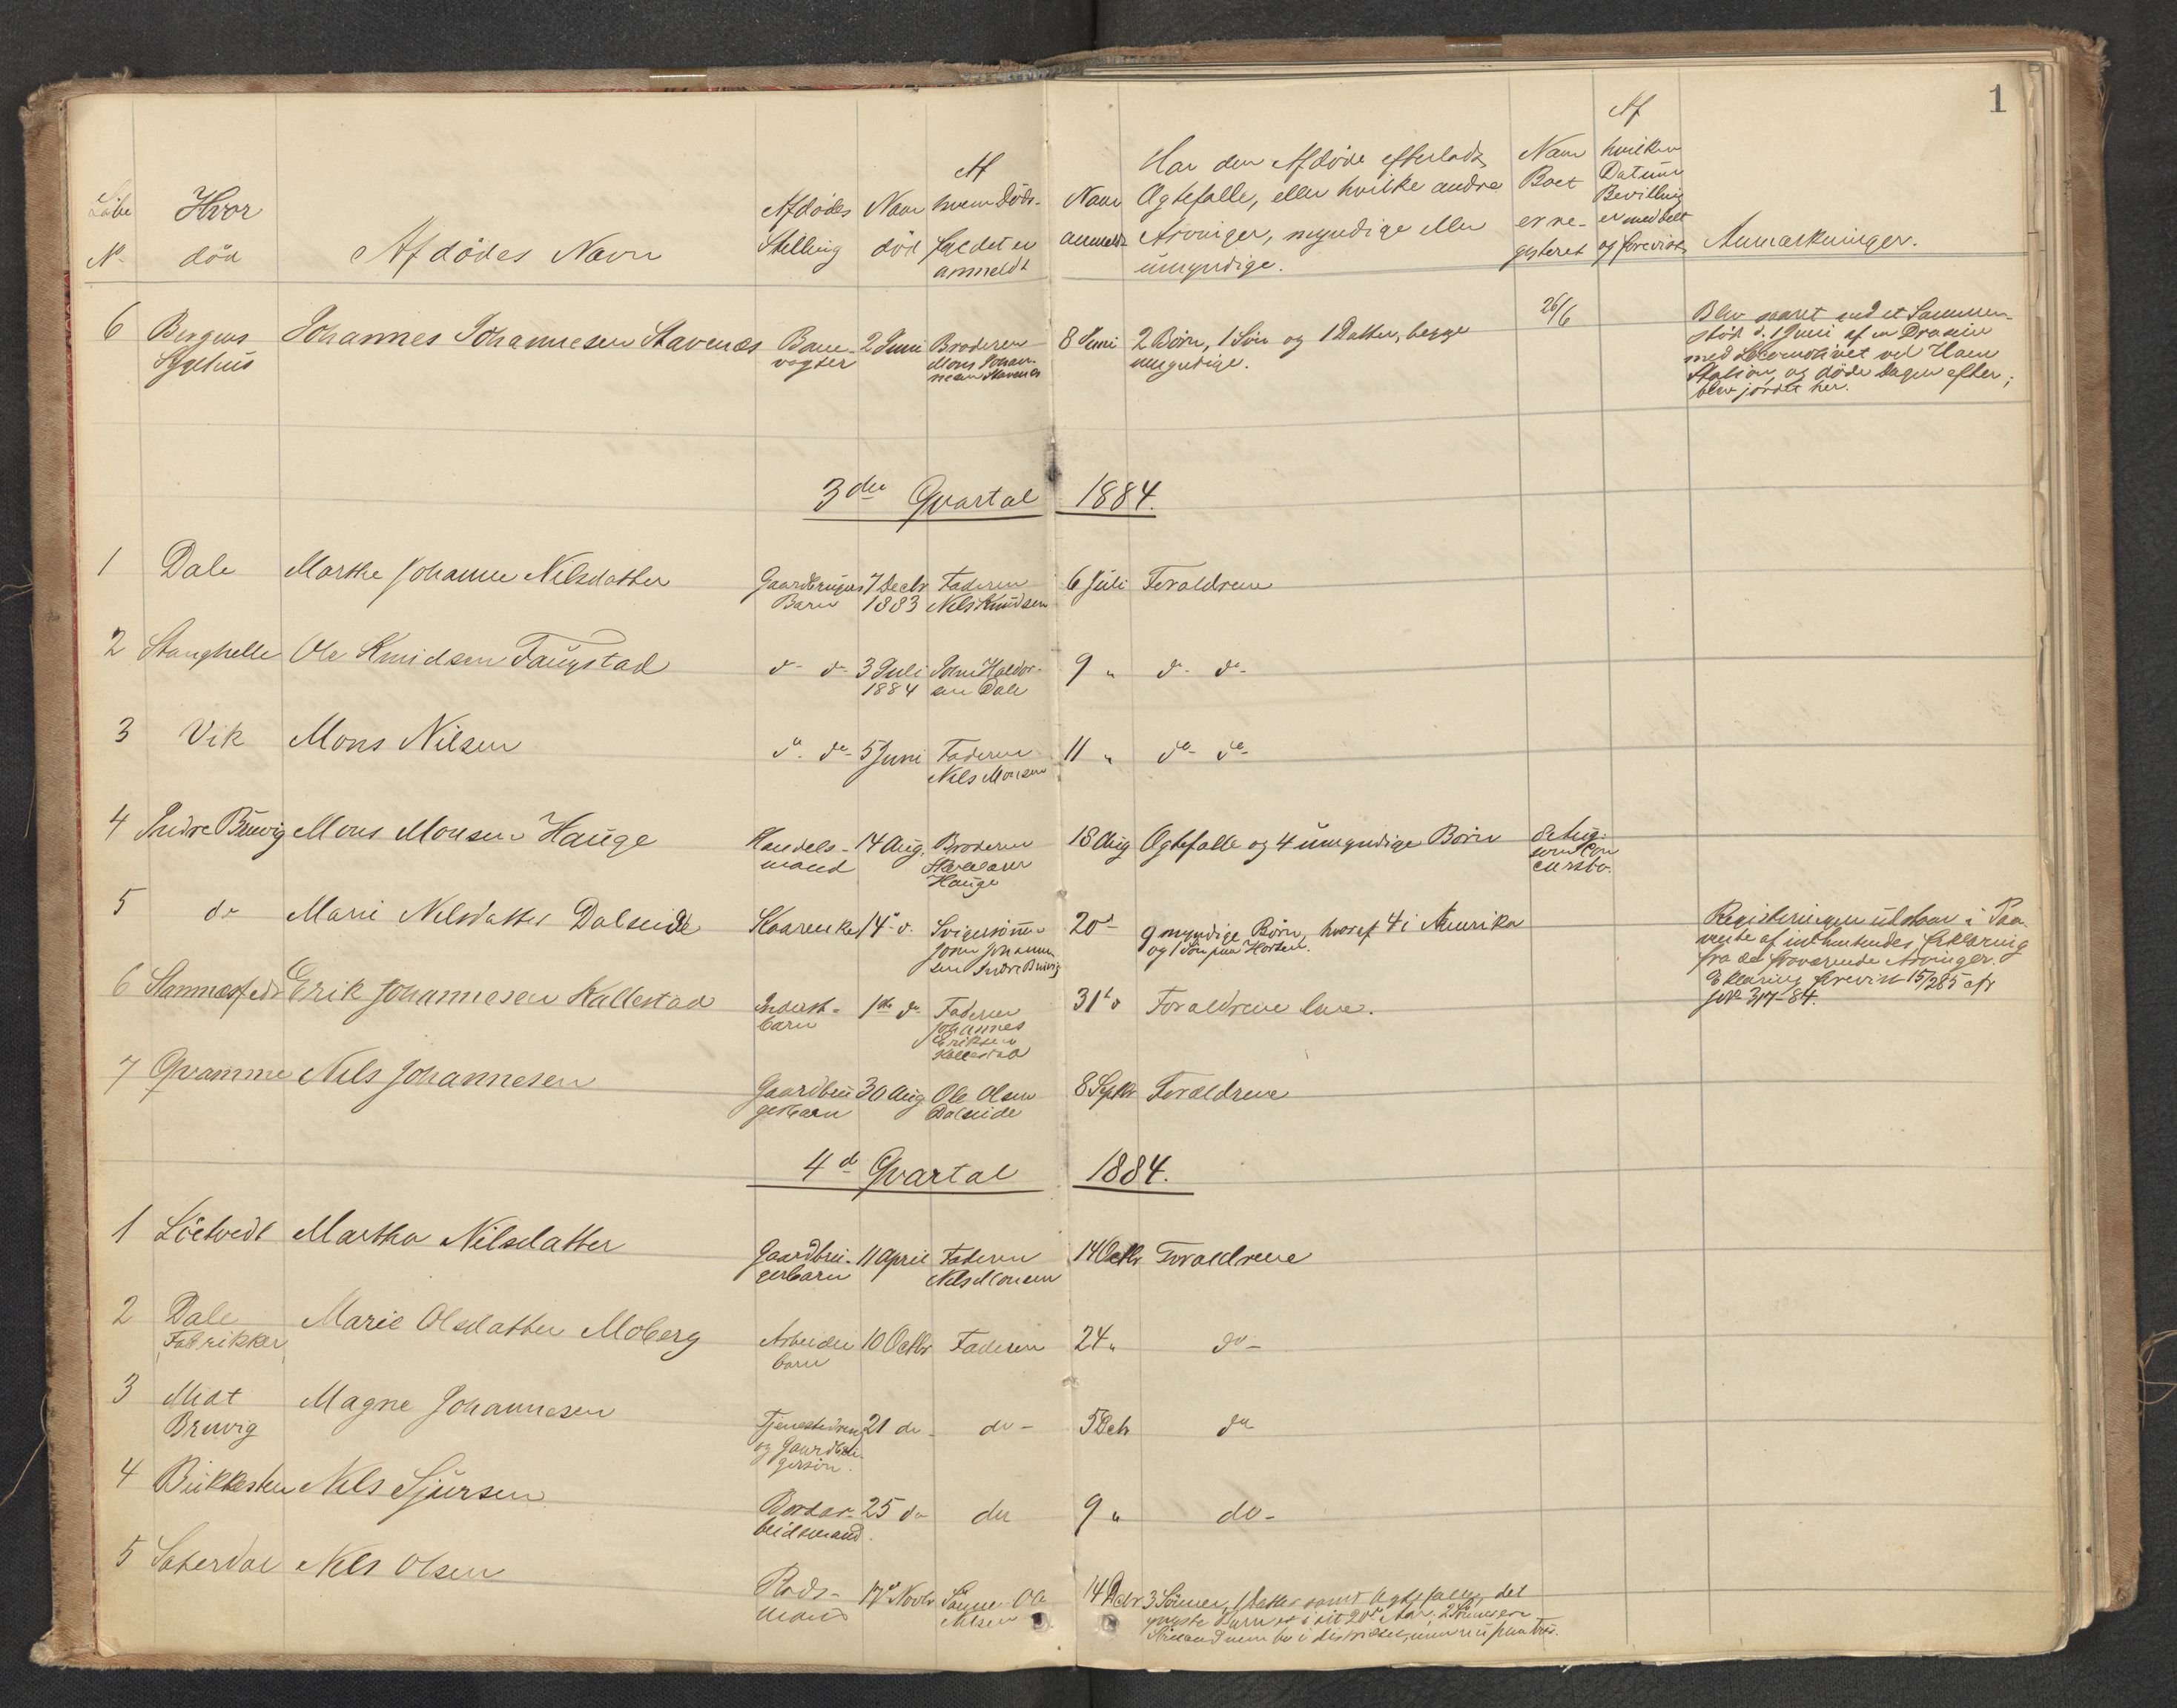 1
Löbe No.
Hvor död
Afdödes Navn
Afdödes Stilling
Naar död
Af hvem Döds-
faldet er
anmeldt
Naar anmeldt
Har den Afdöde efterladt
Ægtefælle, eller hvilke andre
Arvinger, myndige eller
umyndige.
Naar
Boet
er re-
gistreret
Af
hvilken
Datum
Bevilling
er meddelt
og forevist
Anmærkninger.
6 Bergens Sygehus Johannes Johannesen Stavenæs Bane- vogter 2 Juni Broderen Mons Johan- nesen Stavenæs 8 Juni 2 Börn, 1 Sön og 1 Datter, begge umyndige. 26/6
Blev saaret ved et Sammen-
stöd d. 1 Juni af en Draisine
med Locomotivet ved
Station, og döde Dagen efter;
blev jordet her.
3die Qvartal 1884.
1 Dale Marthe Johanne Nilsdatter Gaardbrugers Barn 7 Decbr 1883 Faderen Nels Knudsen 6 Juli Forældrene
2 Stanghelle Ole Knudsen Faugstad do do 3 Juli 1884 John Haldor- sen Dale 9 " do do
3 Vik Mons Nilsen do do 5 Juni Faderen Nels Monsen 11 " do do
4 Indre Bruvig Mons Monsen Hauge Handels- mand 14 Aug. Broderen Hauge 18 Aug Ægtefælle og 4 umyndige Börn som Con cursbo.
5 do Marie Nelsdatter Dalseide Kaarenke 14 do Svigersönnen John Johannes sen Indre Bruvig 20 do 9 myndige Börn, hvoraf 4 i Amerika og 1 Sön paa Horten.
Registeringen udstaar i Paa-
vente af indhentendes Erklæring
fra de fraværende Arvinger.
Erklæring forevist 15/2 85 cfr
jvr 317-84.
6 Erik Johannesen Kallestad Inderst- barn 1ste do Faderen Johannes Eriksen Kallestad 31 do Forældrene
7 Qvamme Nels Johannesen Gaardbru- gerbarn 30 Aug Ole Olsen Dalseide 8 Septbr Forældrene
4de Qvartal 1884.
1 Löetvedt Martha Nilsdatter Gaardbru- gerbarn 11 April Faderen Nels Monsen 14 Octbr Forældrene
2 Dale Fabrikker Marie Olsdatter Moberg Arbeider barn 10 Octbr Faderen 24 " do
3 Midt Bruvig Magne Johannesen Tjenestedreng og Gaardbru- gersön 21 do do 5 Decbr do
4 Bukkesten Nels Sjursen 25 do do 9 " do
5 Saterdal Nels Olsen Rods- mand 17 Novbr Sönnen Ole Nelsen 14 Decbr 3 Sönner, 1 Datter samt Ægtefælle, det
yngste Barn er i sit 20de Aar.